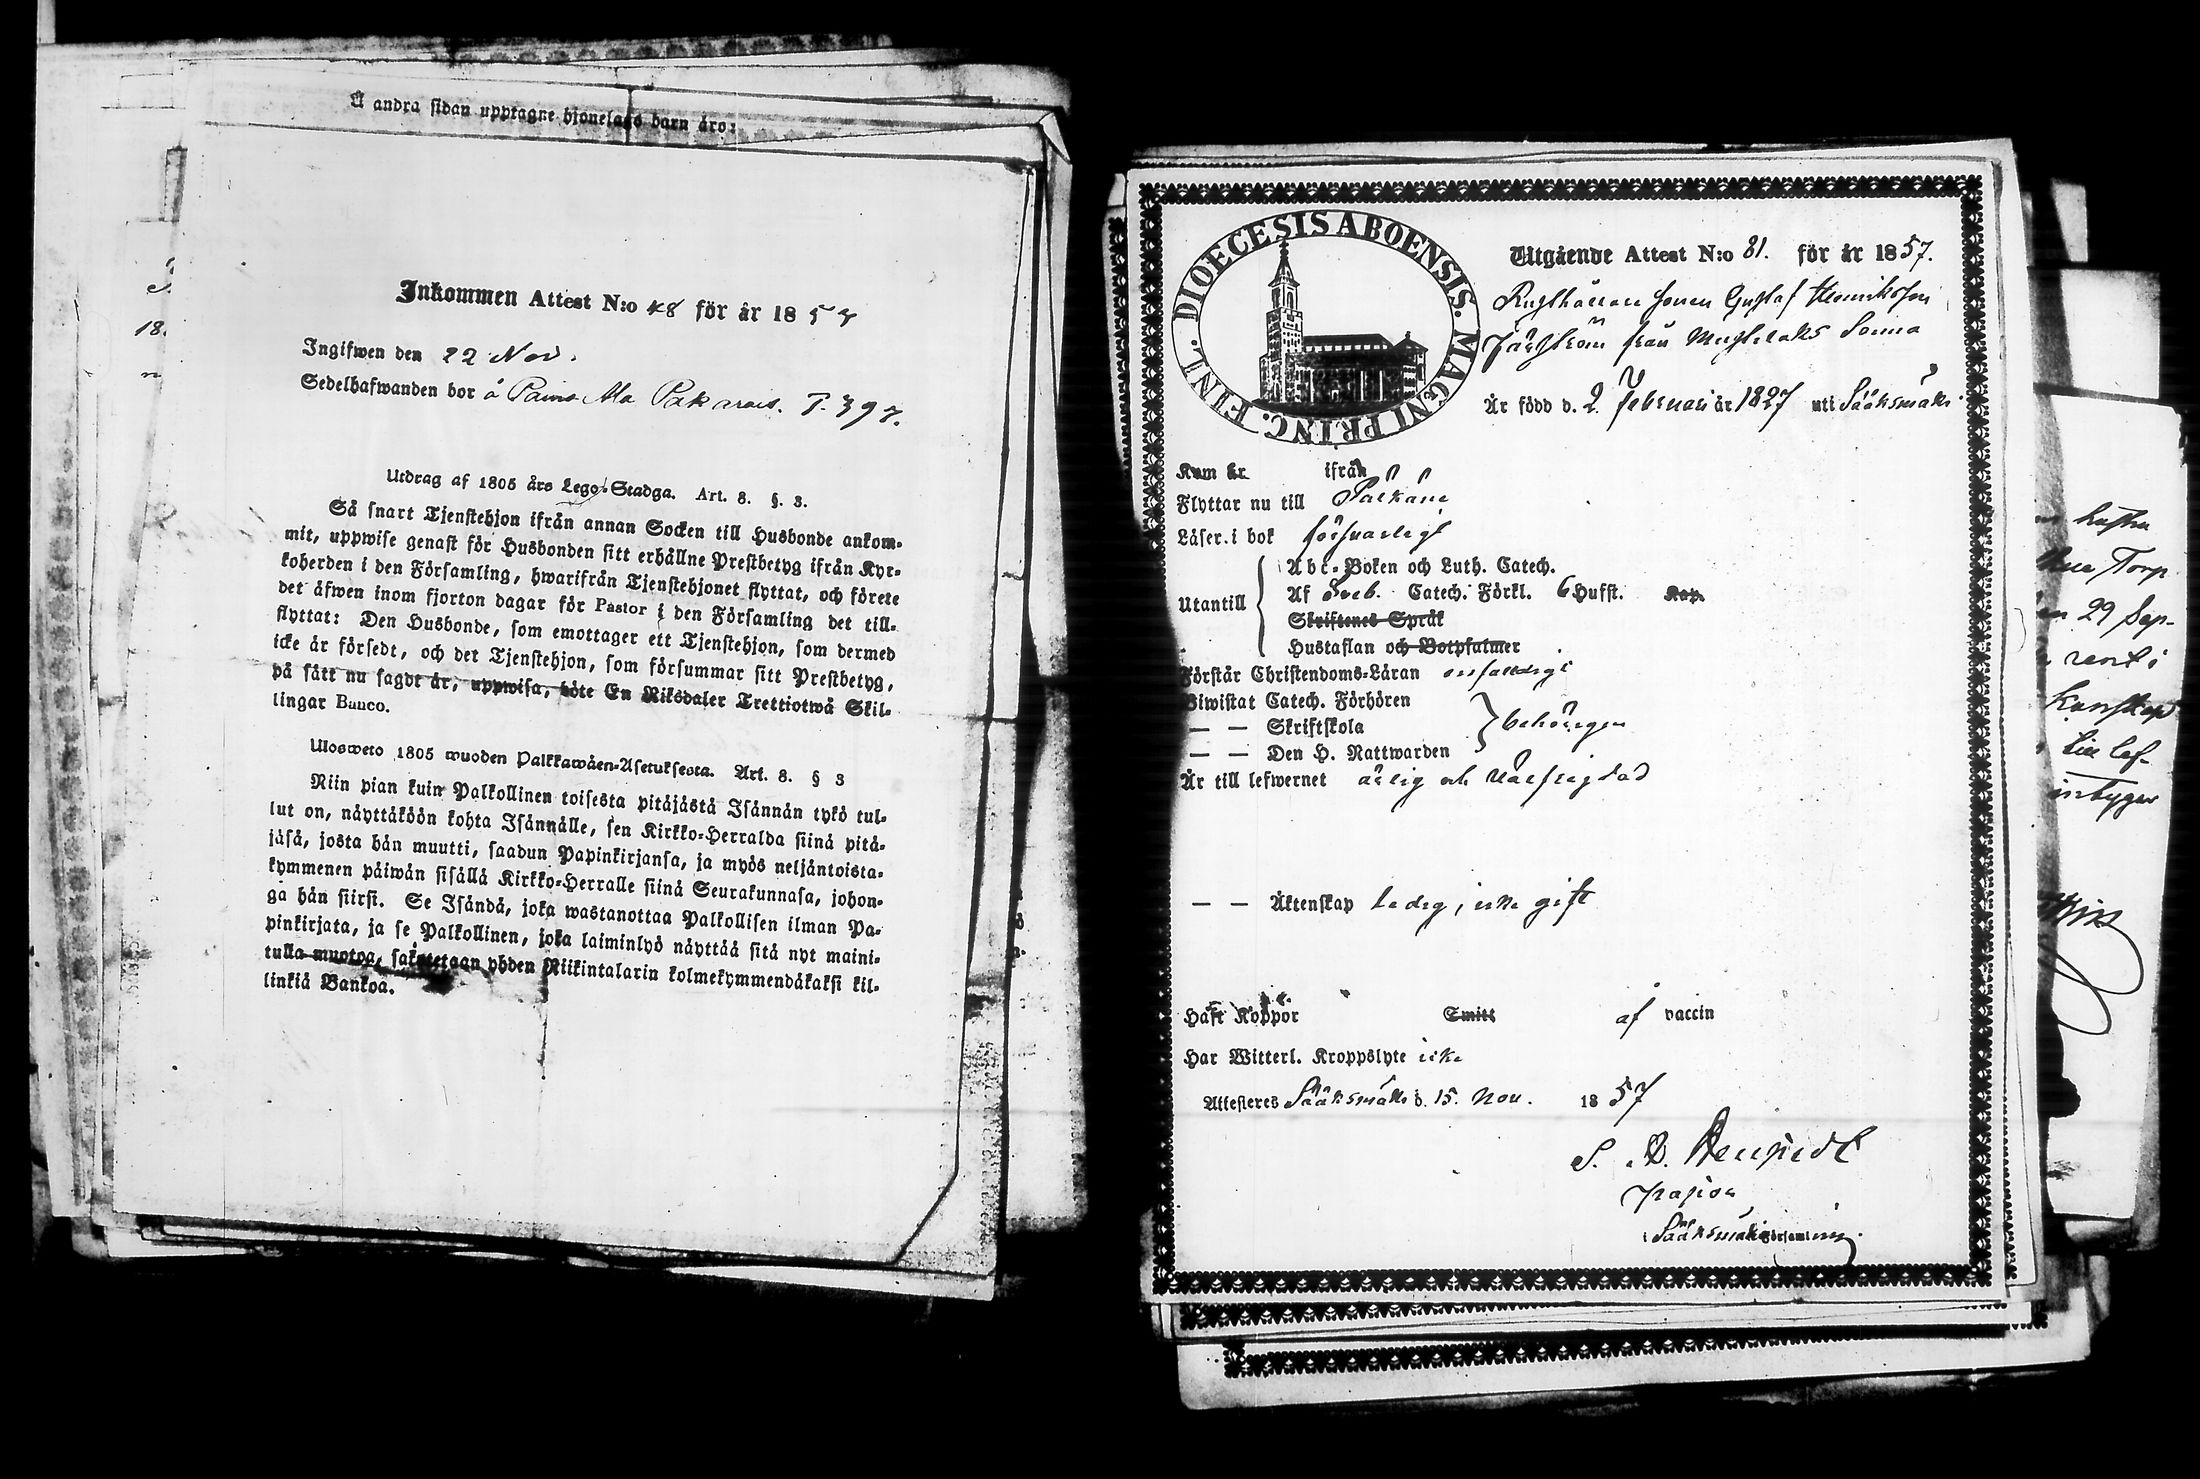 Å andra sidan upptagne hjonelags barn äro:
18
Inkommen Attest N:o 48 för år 1857
Ingifwen den 22 Nov.
Sedelhafwanden bor å Paino Ala Pakarais. P. 397.
Utdrag af 1805 års Lego-Stadga. Art. 8. §. 3.
Så snart Tjenstehjon ifrån annan Socken till Husbonde ankom-
mit, uppwise genast för Husbonden sitt erhållne Prestbetyg ifrån Kyr-
koherden i den Församling, hwarifrån Tjenstehjonet flyttat, och förete
det äfwen inom fjorton dagar för Pastor i den Församling det till-
flyttat: Den Husbonde, som emottager ett Tjenstehjon, som dermed
icke är försedt, och det Tjenstehjon, som försummar sitt Prestbetyg,
på sätt nu sagdt är, uppwisa, böte En Riksdaler Trettiotwå Skil-
lingar Banco.
Ulosweto 1805 wuoden Palkkawäen-Asetuksesta. Art. 8. § 3
Niin pian kuin Palkollinen toisesta pitäjästä Isännän tykö tul-
lut on, näyttäköön kohta Isännälle, sen Kirkko-Herralda siinä pitä-
jäsä, josta hän muutti, saadun Papinkirjansa, ja myös neljäntoista-
kymmenen päiwän sisällä Kirkko-Herralle siinä Seurakunnasa, johon-
ga hän siirsi. Se Isändä, joka wastanottaa Palkollisen ilman Pa-
pinkirjata, ja se Palkollinen, joka laiminlyö näyttää sitä nyt maini-
tulla muotoa, sakotetaan yhden Riikintalarin kolmekymmendäkaksi kil-
linkiä Bankoa.
DIOECESIS ABOENSIS. MAGNI PRINC. FINL.
Utgående Attest N:o 81. för år 1857.
Rusthållare sonen Gustaf Henriksson
från Sonna
Är född d. 2 Februari år 1827 uti Sääksmäki
Kom år ifrån
Flyttar nu till Pälkäne
Läser i bok försvarligt
Utantill
Abc-Boken och Luth. Catech.
Af Sveb. Catech. Förkl. 6 Hufst. Kap.
Skriftenes Språk
Hustaflan och Botpsalmer
Förstår Christendoms-Läran enfaldigt
Biwistat Catech. Förhören
— — Skriftskola behörigen
— — Den H. Nattwarden
Är till lefwernet ärlig och välfrejdad
— — Äktenskap ledig, icke gift
Haft Koppor Smitt af vaccin
Har Witterl. Kroppslyte icke
Attesteras Sääksmäki d. 15. Nov. 1857
pastor
i Sääksmäki Församling.
Torp
29 Sep-